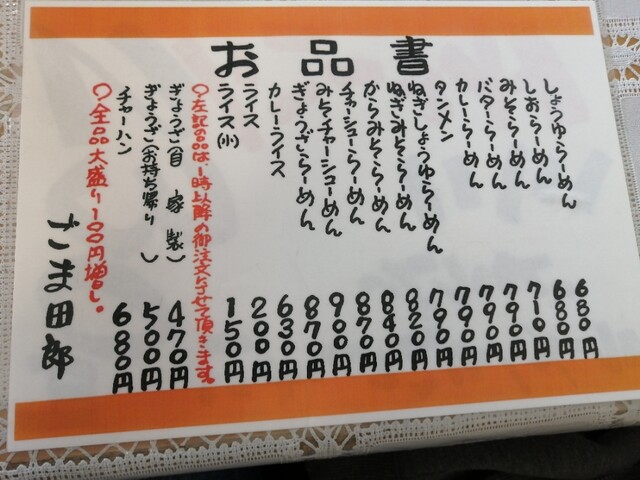 お品書
しょうゆらーめん 680円
しおらーめん 680円
みそらーめん 710円
バターらーめん 790円
カレーらーめん 790円
タンメン 790円
ねぎしょうゆらーめん 790円
ねぎみそらーめん 820円
からみそらーめん 840円
チャーシューらーめん 870円
みそチャーシューめん 900円
ぎょうざらーめん 870円
カレーライス 630円
ライス 200円
ライス(小) 150円
〇左記の品は、1時以降の御注文とさせて頂きます。
ぎょうざ(自家製) 470円
ぎょうざ(お持ち帰り) 500円
チャーハン 680円
〇全品大盛り100円増し。
ごま田郎